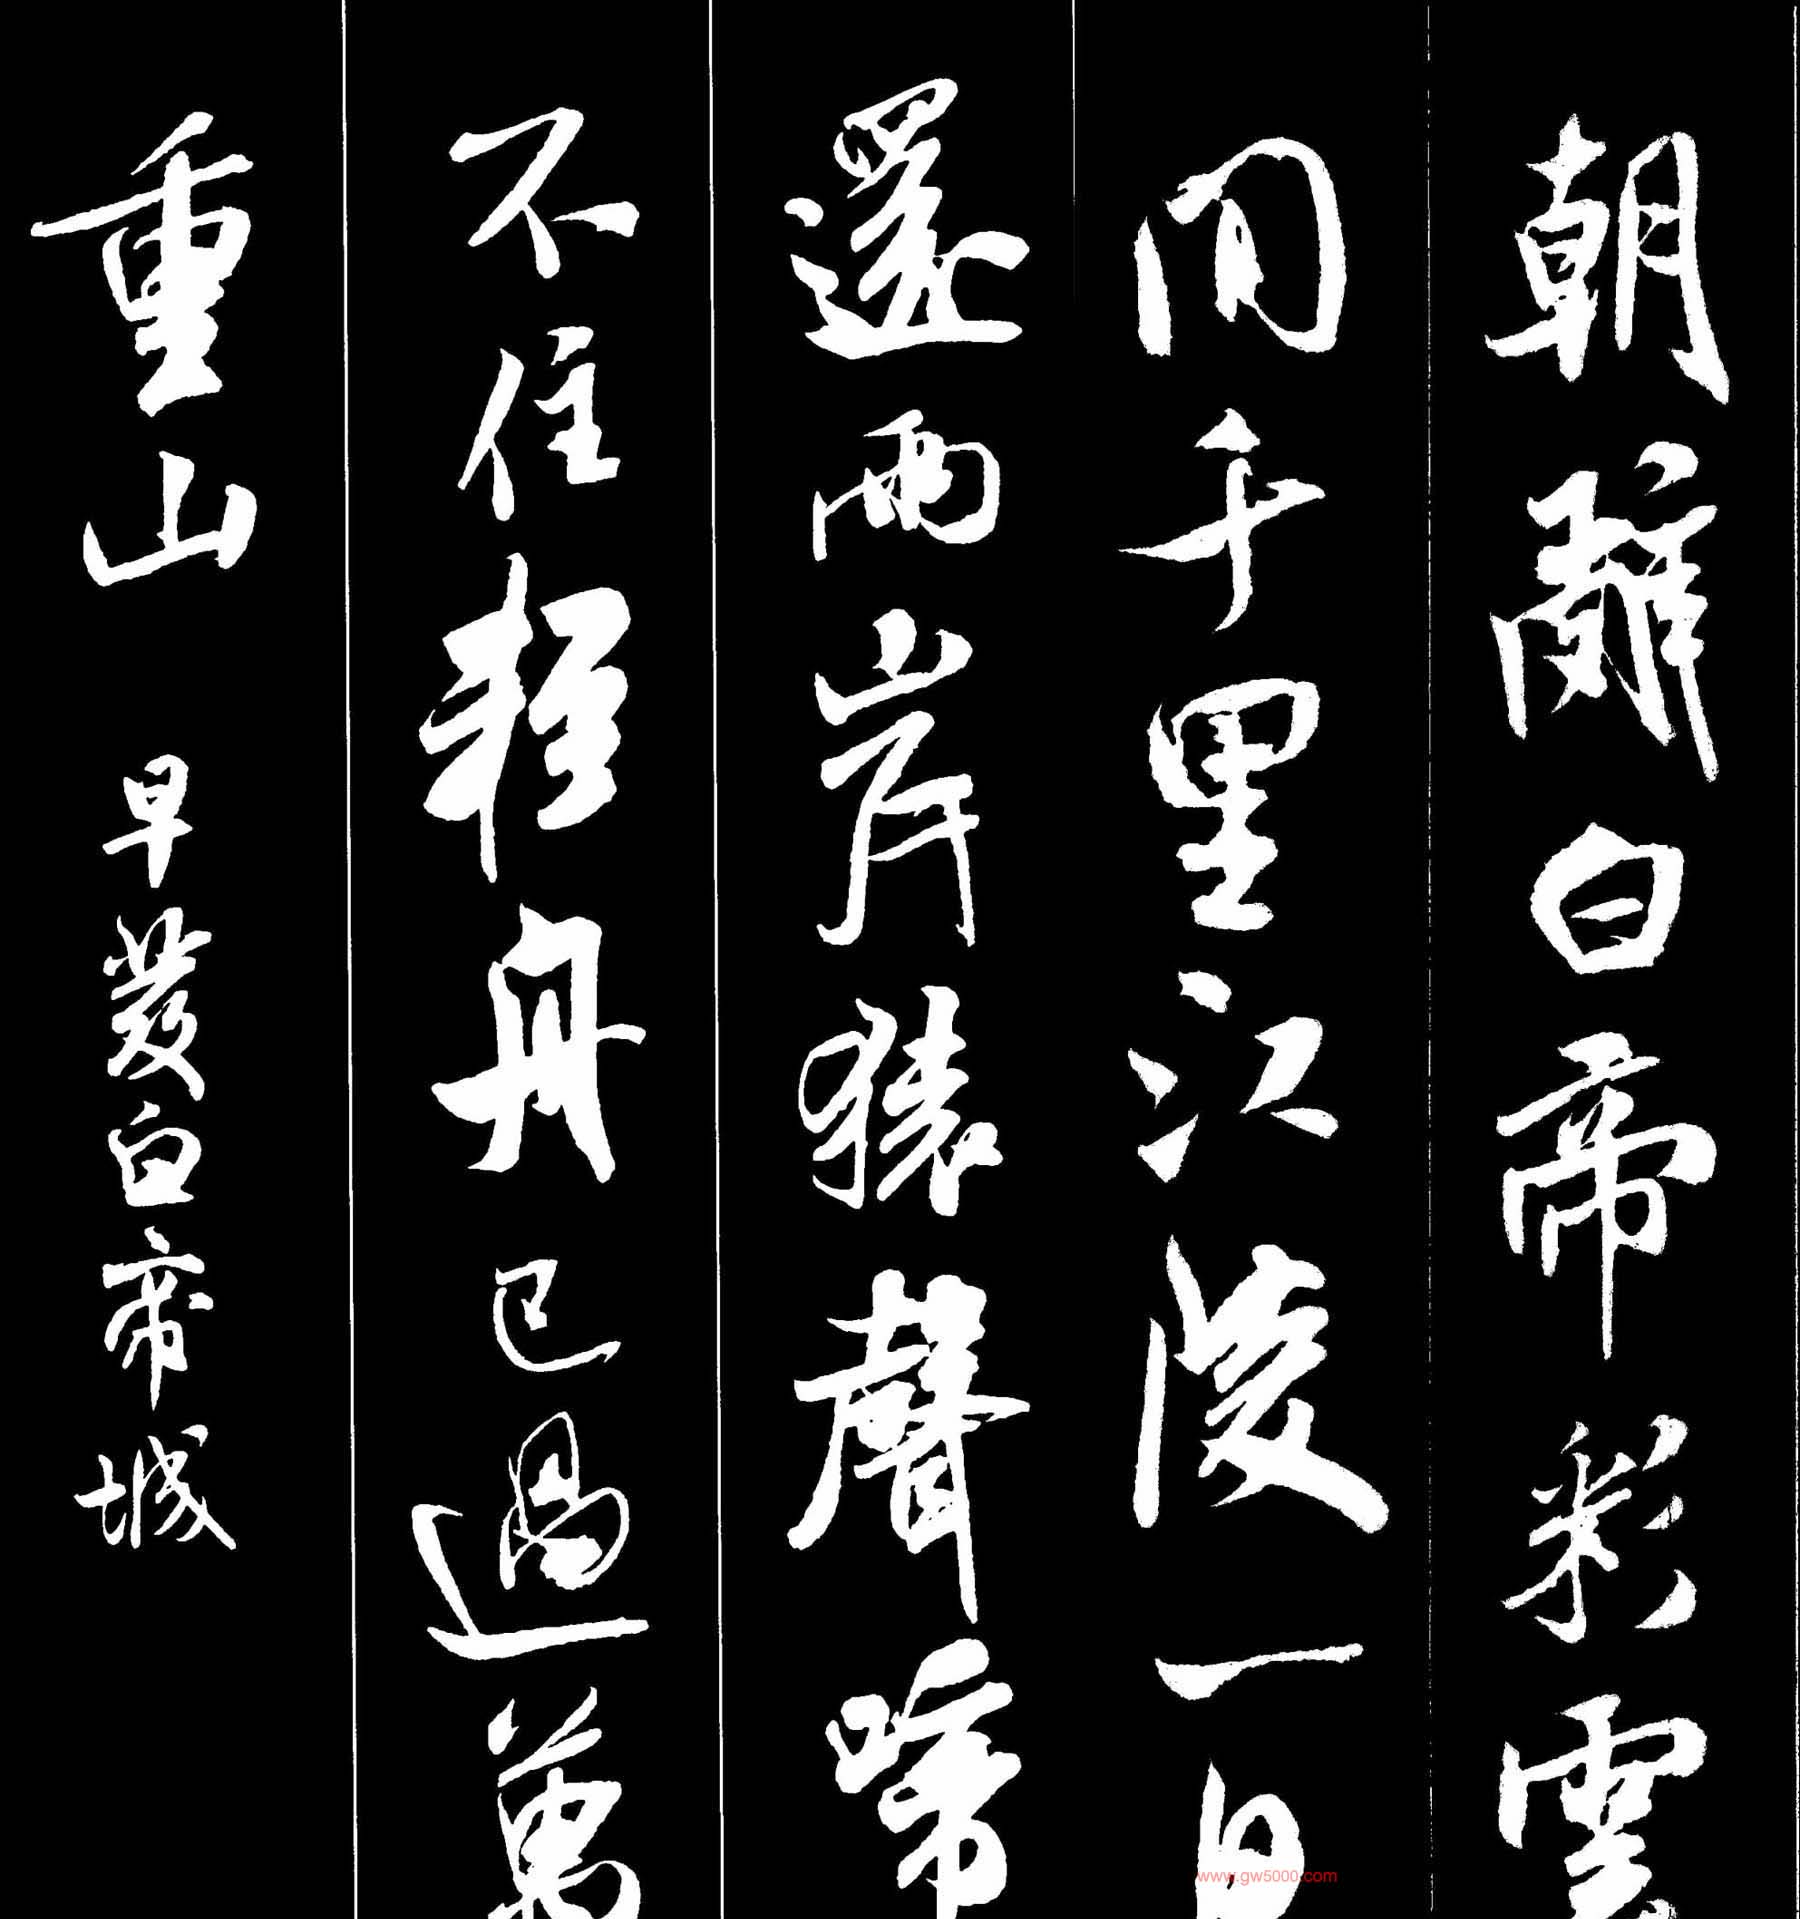 朝辭白帝彩雲
間千里江陵一日
還兩岸猿聲啼
不住輕舟已過萬
重山 早發白帝城
www.gw5000.com